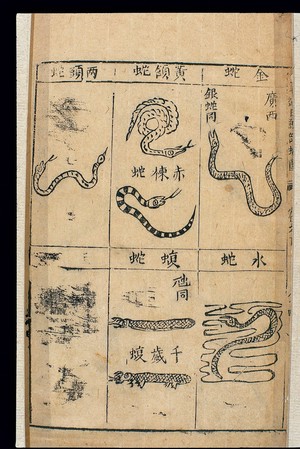 金蛇
廣西
銀蛇同
黃頷蛇
赤楝蛇
兩頭蛇
水蛇
蝮蛇
虺同
千歲蝮